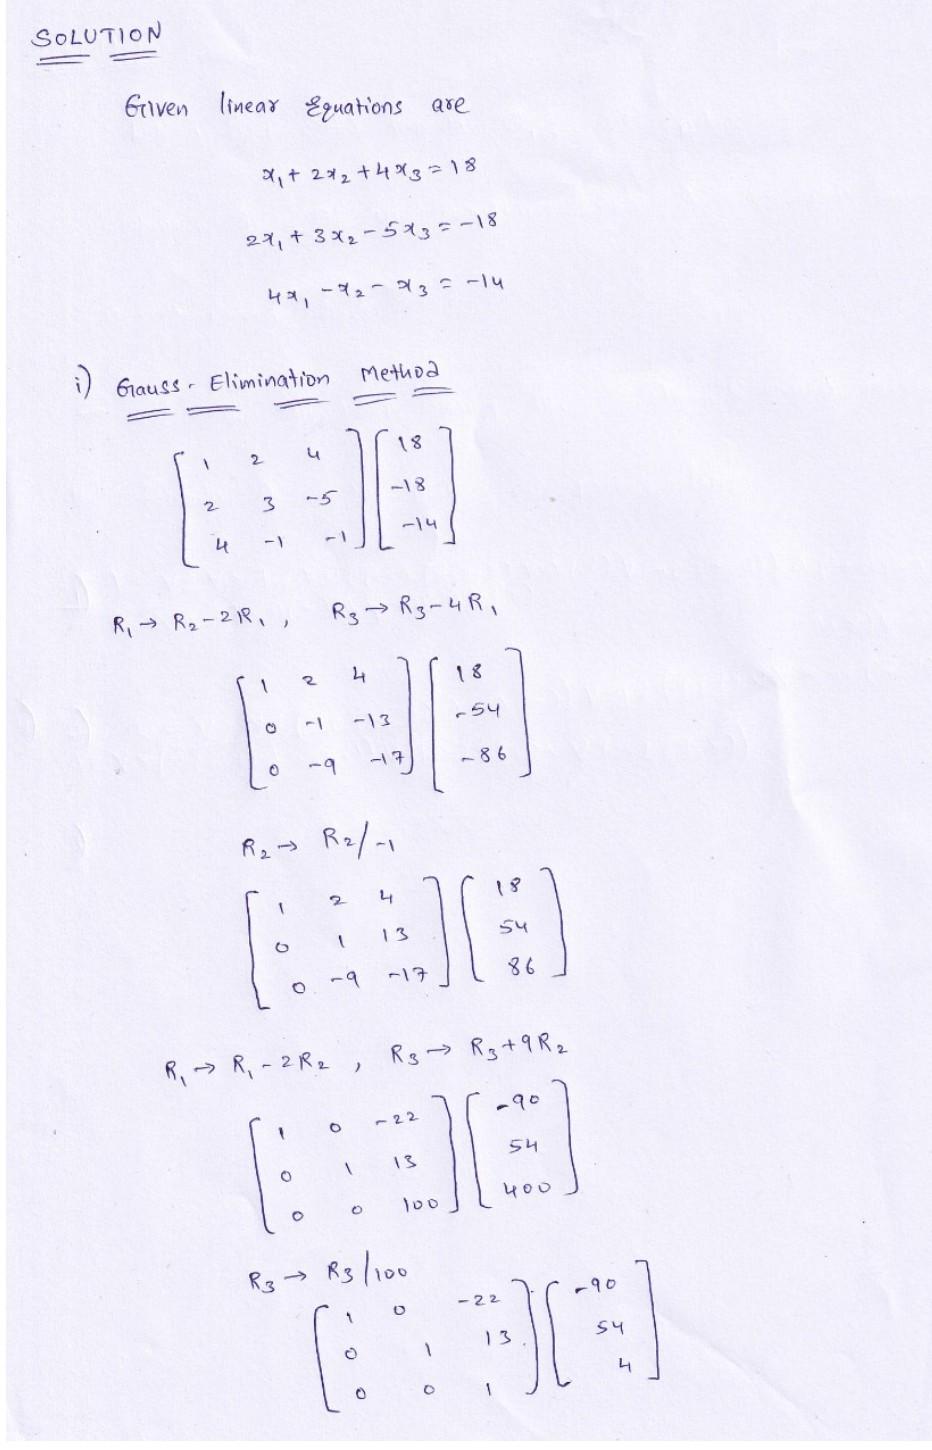 SOLUTION
Given linear Equations are
x₁ + 2x₂ + 4x₃ = 18
2x₁ + 3x₂ - 5x₃ = -18
4x₁ - x₂ - x₃ = -14
i) Gauss - Elimination Method
1 2 4 18
2 3 -5 -18
4 -1 -1 -14
R₁ → R₂ - 2R₁ , R₃ → R₃ - 4R₁
1 2 4 18
0 -1 -13 -54
0 -9 -17 -86
R₂ → R₂/-1
1 2 4 18
0 1 13 54
0 -9 -17 86
R₁ → R₁ - 2R₂ , R₃ → R₃ + 9R₂
1 0 -22 -90
0 1 13 54
0 0 100 400
R₃ → R₃/100
1 0 -22 -90
0 1 13 54
0 0 1 4